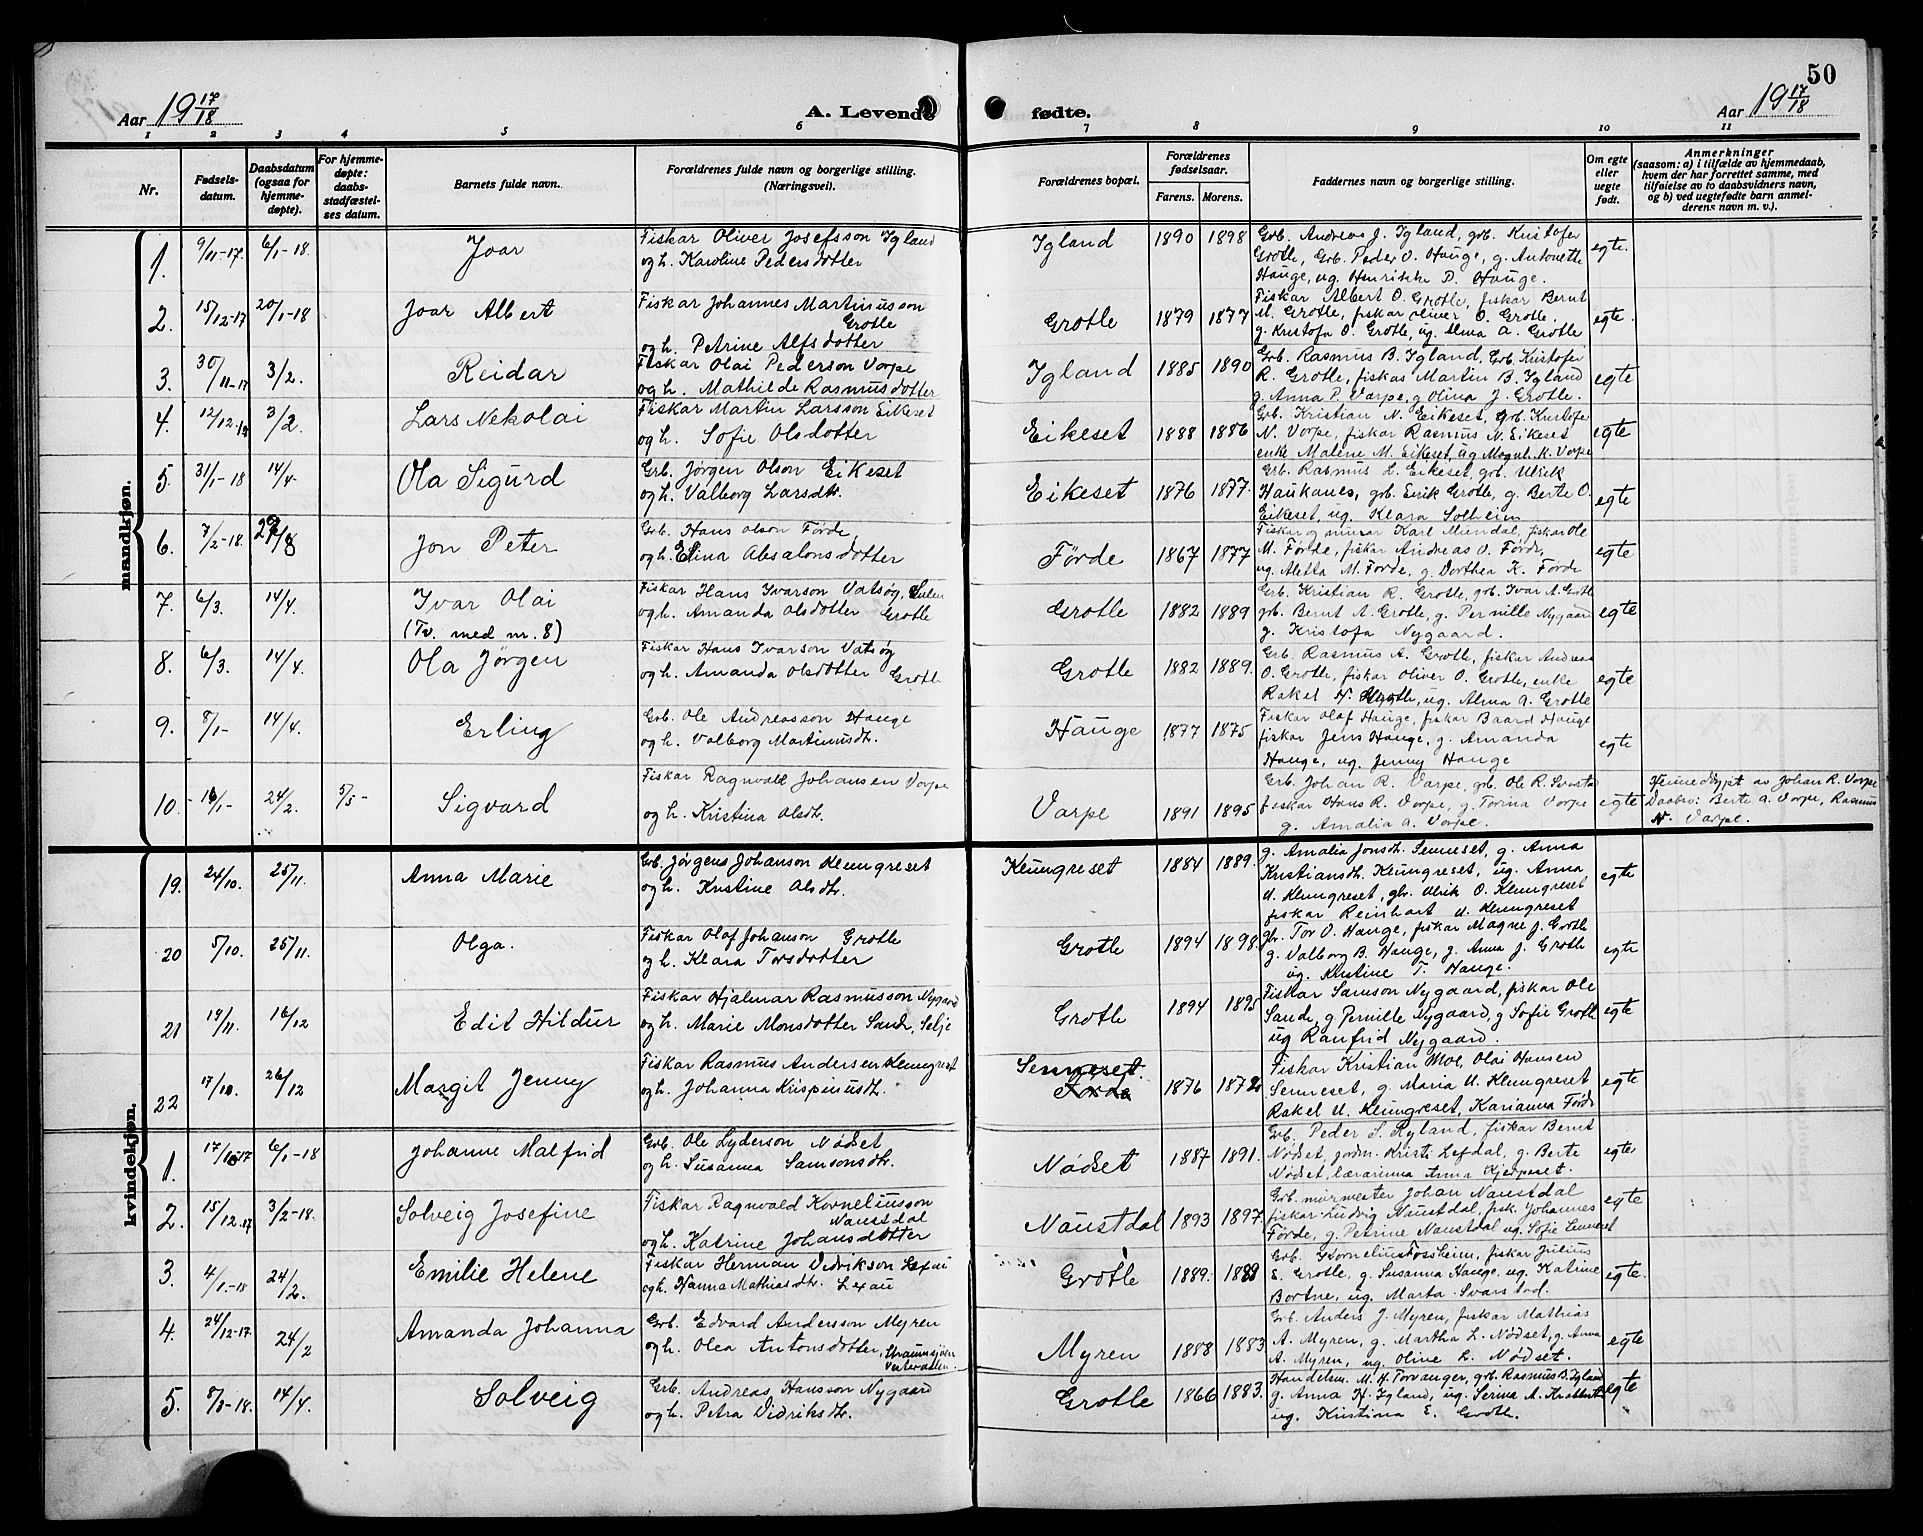 50
Aar 19 17/18
A. Levende fødte.
Aar 19 17/18
1 2 3 4 5 6 7 8 9 10 11
Nr.
Fødsels-datum.
Daabsdatum (ogsaa for hjemme-døpte).
For hjemme-døpte: daabs-stadfæstel-ses datum.
Barnets fulde navn.
Forældrenes fulde navn og borgerlige stilling. (Næringsvei).
Forældrenes bopæl.
Forældrenes fødselsaar.
Farens. Morens.
Faddernes navn og borgerlige stilling.
Om egte eller uegte født.
Anmerkninger
(saasom: a) i tilfælde av hjemmedaab, hvem der har forrettet samme, med tilføielse av to daabsvidners navn, og b) ved uegtefødte barn anmel-derens navn m. v.).
mandkjøn.
1. 9/11-17. 6/1-18. Joar Fiskar Oliver Josefsson Igland Igland 1890 1898 Grb. Andreas J. Igland, grb. Kristofer egte.
og h. Karoline Pedersdotter Grotle, Grb. Peder O. Hauge, g. Antonette
Hauge, ug. Henrikke P. Hauge.
2. 15/12-17 20/1-18 Joar Albert Fiskar Johannes Martinusson Grotle Grotle 1879 1877 Fiskar Albert O. Grotle, fiskar Bernt egte.
og h. Petrine Alfsdotter M. Grotle, fiskar Oliver O. Grotle.
g. Kristofa O. Grotle, ug. Alma A. Grotle
3. 30/11-17 3/2. Reidar Fiskar Olai Pederson Vorpe Igland 1885 1890 Grb. Rasmus B. Igland, Grb. Kristofer egte
og h. Mathilde Rasmusdotter R. Grotle, fiskar Martin B. Igland
g. Anna P. Varpe, g. Olina J. Grotle.
4. 12/12-17 3/2. Lars Nekolai Fiskar Martin Larsson Eikeset Eikeset 1888 1886 Grb. Kristian N. Eikeset, grb. Kristofer egte
og h. Sofie Olsdotter N. Vorpe, fiskar Rasmus N. Eikeset
enke Malene M. Eikeset, ug Magnh. K. Vorpe
5. 31/1-18 14/4. Ola Sigurd Grb. Jørgen Olson Eikeset Eikeset 1876 1877. Grb. Rasmus L. Eikeset, grb. Ulrik egte
og h. Valborg Larsdtr. Haukanes, grb. Eirik Grotle, g. Berte O.
Eikeset, ug. Klara Solheim
6. 7/2-18. Jon Peter Grb. Hans Olson Førde Førde 1867 1877 Fiskar og murar Karl Mundal, fiskar Ole egte
og h. Elina Absalonsdotter M. Førde, fiskar Andreas O. Førde,
ug. Aletta M. Førde, g. Dorthea K. Førde
7. 6/3. 14/4. Ivar Olai Fiskar Hans Ivarson Vatsøy, Sulen Grotle 1882 1889 Grb. Kristian R. Grotle, grb. Ivar A. Grotle egte
(Tv. med nr. 8) og h. Amanda Olsdotter Grotle grb. Bernt A. Grotle, g. Pernille Nygaard
g. Kristofa Nygaard.
8. 6/3. 14/4. Ola Jørgen Fiskar Hans Ivarson Vatsøy Grotle 1882 1889. Grb. Rasmus A. Grotle, fiskar Andreas egte
og h. Amanda Olsdotter Grotle O. Grotle, fiskar Oliver O. Grotle, enke
Rakel N. Grotle, ug. Alma A. Grotle
9. 8/1- 14/4. Erling Grb. Ole Andreasson Hauge Hauge 1877 1875 Fiskar Olaf Hauge, fiskar Baard Hauge egte
og h. Valborg Martinusdtr. fiskar Jens Hauge, g. Amanda
Hauge, ug. Jenny Hauge
10. 16/1- 24/2. 5/5- Sigvard Fiskar Ragnvald Johansen Vorpe Varpe 1891 1895 Grb. Johan R. Varpe, grb. Ole R. Svarstad egte Hjemmedøpt av Johan R. Vorpe
og h. Kristina Olsdtr. fiskar Hans R. Vorpe, g. Torina Vorpe Daabsv: Berte A. Vorpe, Rasmus
g. Amalia A. Vorpe. N. Varpe.
kvindekjøn.
19. 24/10. 25/11. Anna Marie Grb. Jørgens Johanson Klungreset Keungreset 1884 1889. g. Amalia Jonsdtr. Senneset, g. Anna egte
og h. Kristine Olsdtr. Kristiansdtr. Klungreset, ug. Anna
U. Klungreset, gbr. Ulrik O. Klungreset
fiskar Reinhart U. Klungreset
20 5/10. 25/11. Olga. Fiskar Olaf Johanson Grotle Grotle 1894 1898. gbr. Tor O. Hauge, fiskar Magne J. Grotle egte
og h. Klara Torsdotter g. Valborg B. Hauge, g. Anna J. Grotle
ug. Kristine T. Hauge.
21 19/11. 16/12 Edit Hildur Fiskar Hjalmar Rasmusson Nygaard Grotle 1894 1895 Fiskar Samson Nygaard, fiskar Ole egte
og h. Marie Monsdotter Sande, Selje Sande, g Pernille Nygaard, g Sofie Grotle
ug Ranfrid Nygaard.
22 17/10. 26/12 Margit Jenny Fiskar Rasmus Andersen Klungreset Senneset. Førde 1876 1872 Fiskar Kristian Moe, Olai Hansen egte
og h. Johanna Krispinusdtr. Senneset, g. Maria U. Klungreset
Rakel U. Klungreset, Karianna Førde
1. 6/1-18 Johanne Malfrid Grb. Ole Lyderson Nødset Nødset 1887 1891. Grb. Peder S. Ryland, fiskar Bernt egte
og h. Susanna Samsonsdtr. Nødset, jordm. Kristi Lefdal, g. Berte
Nødset, lærarinna Anna Kjerpeset.
2. 15/12-17 3/2-18. Solveig Josefine Fiskar Ragnvald Korneliusson Naustdal Naustdal 1893 1897. Grb. murmester Johan Naustdal egte
og h. Katrine Johansdotter fiskar Ludvig Naustdal, fisk. Johannes
Førde, g. Petrine Naustdal ug. Sofie Senneset
3. 4/1-18 24/2. Emilie Helene Fiskar Herman Didrikson Lexau Grotle 1889. 1889 Grb. Kornelius Fossheim, fiskar Julius egte.
og h. Hanna Mathiasdtr. Lexau E. Grotle, g. Susanna Hauge, ug. Katrine
Bortne, ug. Marta Svarstad.
4. 24/12-17. 24/2 Amanda Johanna Grb. Edvard Andersson Myren Myren 1888 1883 Grb. Anders J. Myren, fiskar Mathias egte
og h. Olea Antonsdotter, A. Myren, g. Martha L. Nødset, g. Anna
A. Myren, ug. Oline L. Nødset.
5. 8/3-18. 14/4. Solveig Grb. Andreas Hansson Nygaard Grotle 1866 1883. Handelsm. M. H. Torvanger, grb. Rasmus B. Igland egte
og h. Petra Didriksdtr. g. Anna H. Igland, ug. Serina A.
ug. Kristina E. Grotle.